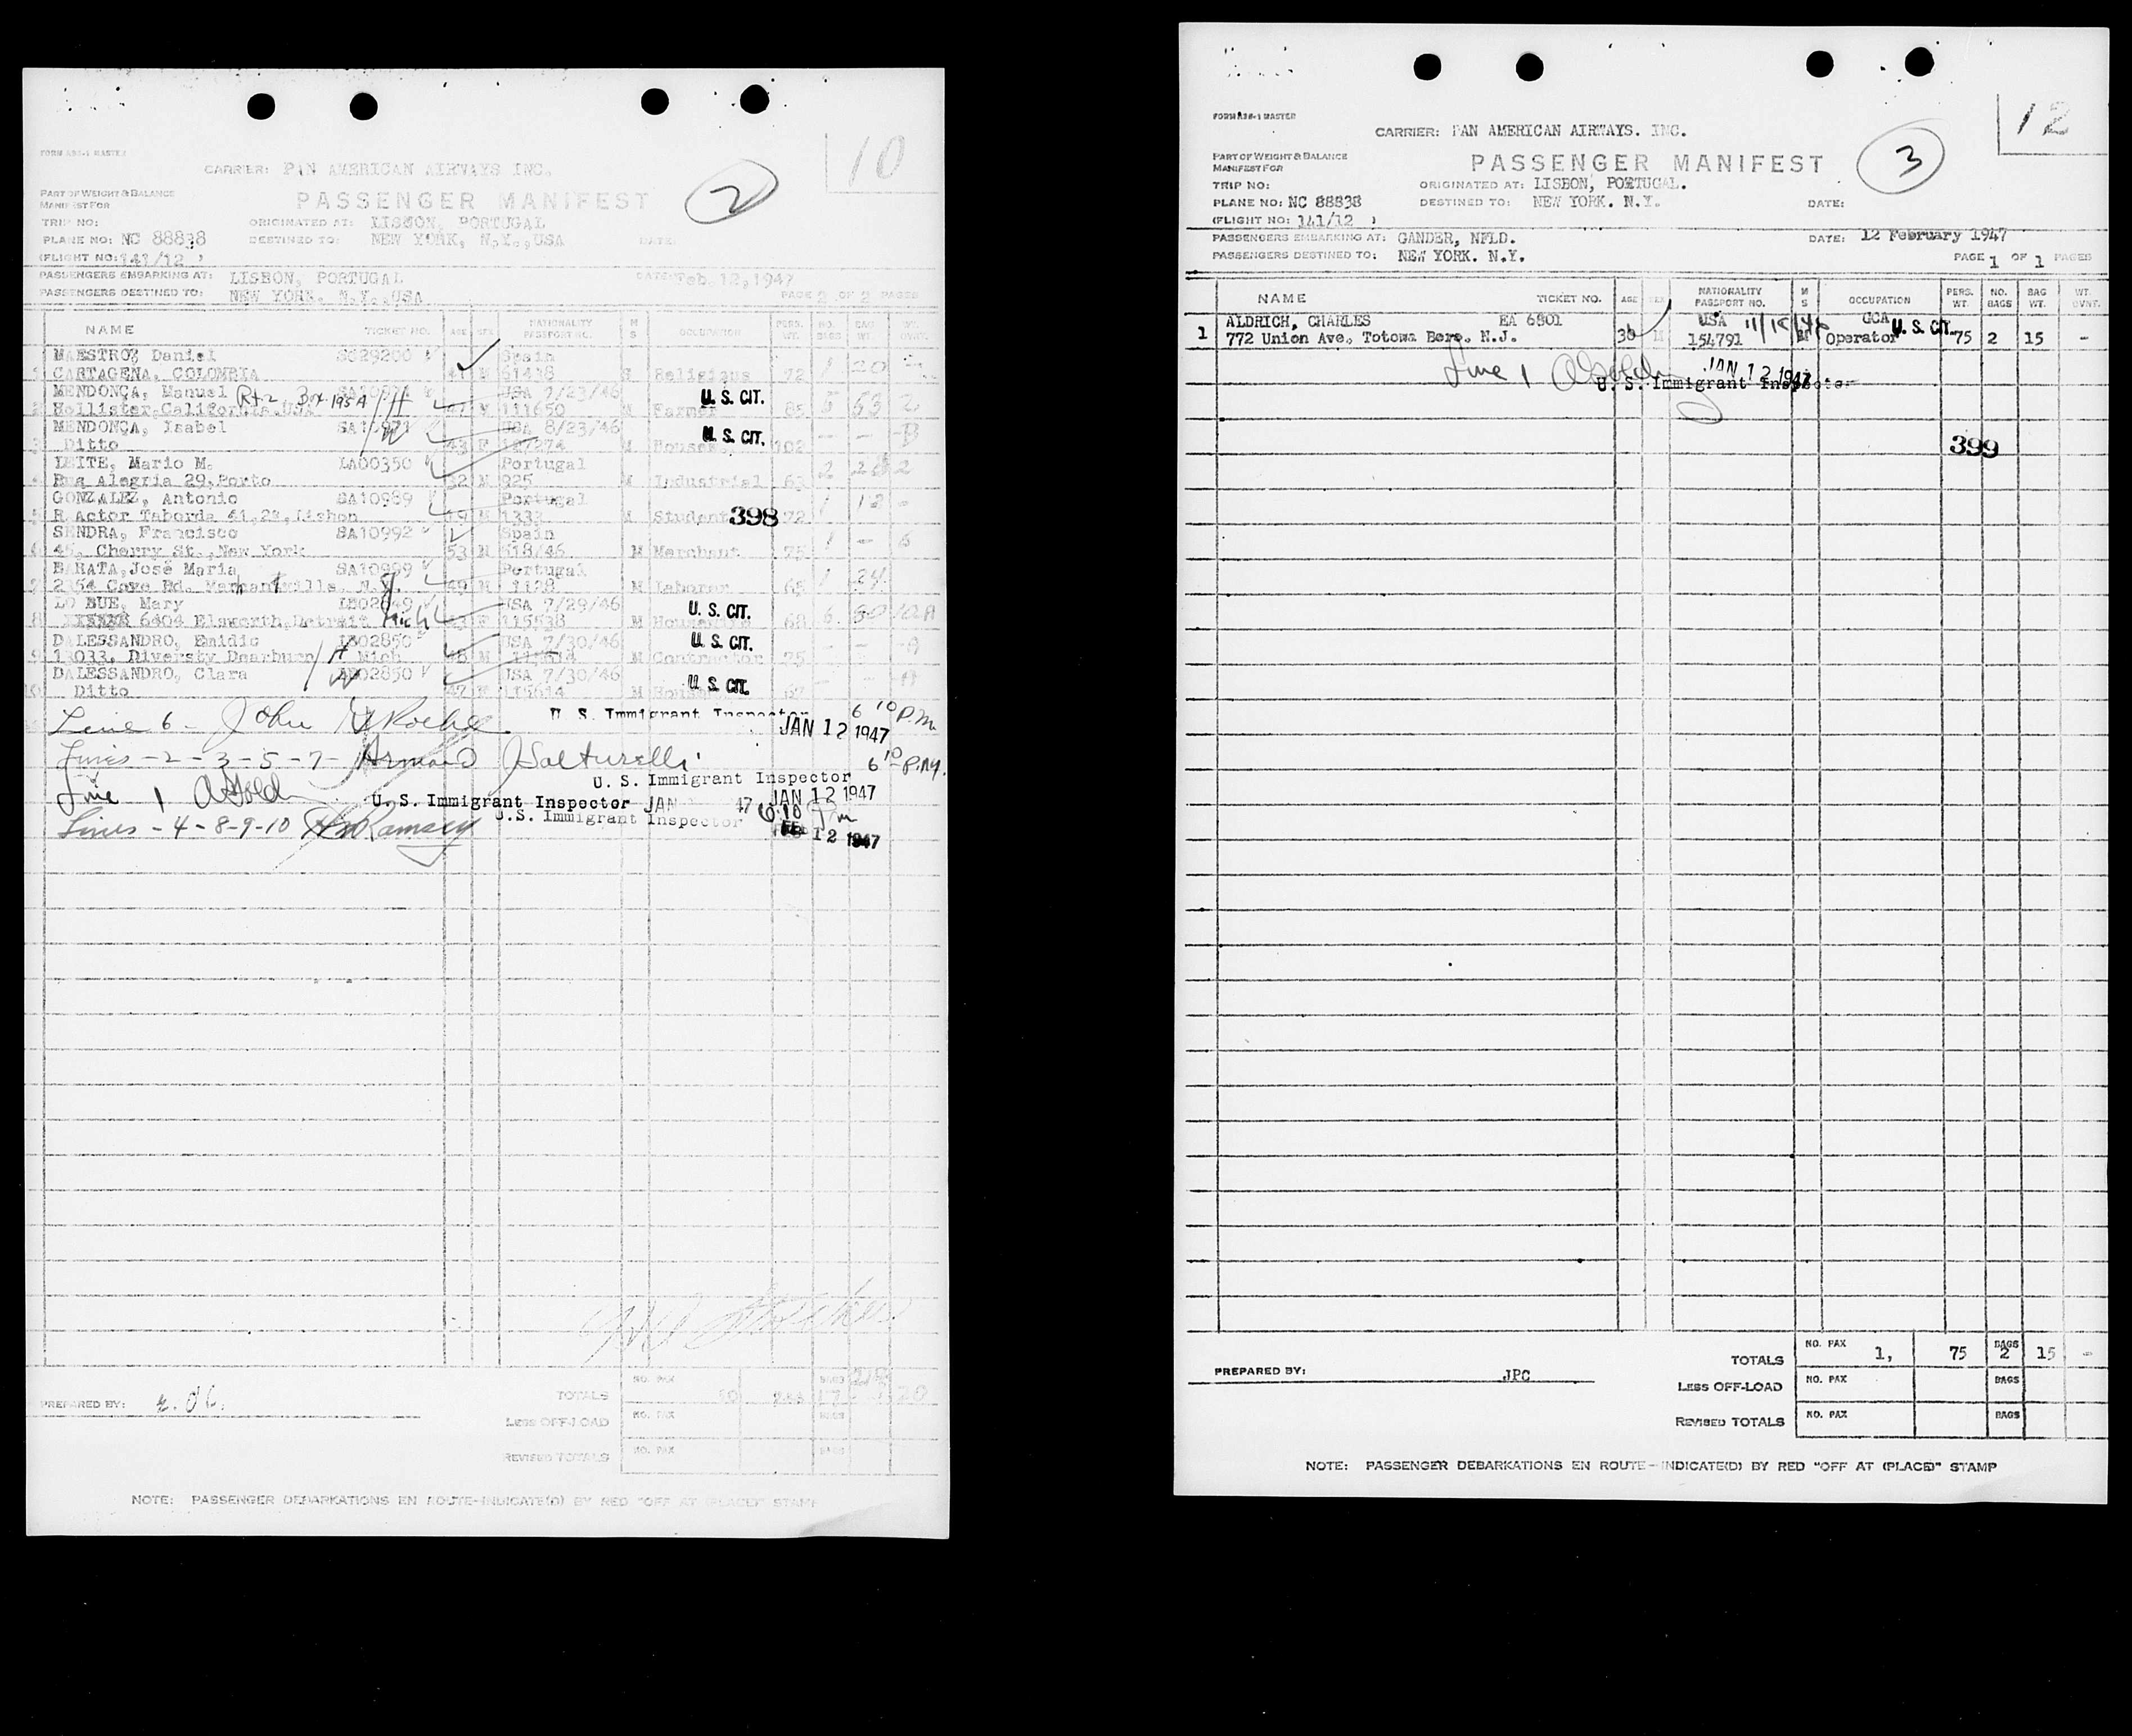 10
FORM ABS-1 MASTER
CARRIER: PAN AMERICAN AIRWAYS INC.
PART OF WEIGHT & BALANCE
MANIFEST FOR
PASSENGER MANIFEST
2
TRIP NO:
ORIGINATED AT: LISBON, PORTUGAL
PLANE NO: NC 88838
DESTINED TO: NEW YORK, N.Y.,USA
DATE:
(FLIGHT NO: 141/12 )
PASSENGERS EMBARKING AT: LISBON, PORTUGAL
DATE: Feb. 12,1947
PASSENGERS DESTINED TO: NEW YORK. N.Y.,USA
PAGE 2 OF 2 PAGES
NAME TICKET NO. AGE SEX NATIONALITY PASSPORT NO. M S OCCUPATION PERS. WT. NO. BAGS BAG WT. WT. OVNT.
MAESTRO, Daniel Spain
1 CARTAGENA, COLOMBIA 41 M 61418 S Religious 72 1 20
MENDONÇA, Manuel Rt 2, Box 195A USA 7/23/46 U. S. CIT.
2 Hollister,California,USA 47 M 111650 M Farmer 85 5 63 2
MENDONÇA, Isabel SA10971 USA 8/23/46 U. S. CIT.
3 Ditto 43 F 127274 M 102 - - B
LEITE, Mario M. LA00350 Portugal
4 Rua Alegria 29,Porto 32 M 925 M Industrial 63 2 28 2
GONZALEZ, Antonio SA10989 Portugal
5 R Actor Taborda 61,2º,Lisbon 19 M 1333 M Student 398 72 1 12 -
SENDRA, Francisco SA10992 Spain
6 45, Cherry St.,New York 53 M 618/46 M Merchant 75 1 - 6
BARATA,José Maria SA10999 Portugal
7 2354 Cove Rd. Merchantville. N.J. 49 M 1128 M Laborer 65 1 24
LO BUE, Mary LB02849 USA 7/29/46 U. S. CIT.
8 6404 Elsworth,Detroit Mich 43 F 115538 M Housewife 68 6 80
DALESSANDRO, Emidio LB02850 USA 7/30/46 U. S. CIT.
9 13033, Diversky Dearburn Mich 48 M 115614 M Contractor 75 - - A
DALESSANDRO, Clara LB02850 USA 7/30/46 U. S. CIT.
10 Ditto 47 F 115614 M 67
Line 6 - John U. S. Immigrant Inspector JAN 12 1947 6 10 P.m
Lines - 2 - 3 - 5 - 7 - Armand Salturelli 6 10 P.M.
U. S. Immigrant Inspector
Line 1 A Gold U. S. Immigrant Inspector JAN 47 JAN 12 1947
Lines - 4 - 8-9-10 Ramsey U.S. Immigrant Inspector 6:10 Pm
FEB 12 1947
TOTALS NO. PAX 10 BAGS 17 20
PREPARED BY:
LESS OFF-LOAD NO. PAX BAGS
REVISED TOTALS NO. PAX BAGS
NOTE: PASSENGER DEBARKATIONS EN ROUTE-INDICATE(D) BY RED "OFF AT (PLACE)" STAMP
12
FORM ABS-1 MASTER
CARRIER: PAN AMERICAN AIRWAYS. INC.
PART OF WEIGHT & BALANCE
MANIFEST FOR
PASSENGER MANIFEST
3
TRIP NO:
ORIGINATED AT: LISBON, PORTUGAL.
PLANE NO: NC 88838
DESTINED TO: NEW YORK. N.Y.
DATE:
(FLIGHT NO: 141/12 )
PASSENGERS EMBARKING AT: GANDER, NFLD.
DATE: 12 February 1947
PASSENGERS DESTINED TO: NEW YORK. N.Y.
PAGE 1 OF 1 PAGES
NAME TICKET NO. AGE SEX NATIONALITY PASSPORT NO. M S OCCUPATION PERS. WT. NO. BAGS BAG WT. WT. OVNT.
ALDRICH, CHARLES EA 6801 USA 11/15/46 GCA U. S. CIT.
1 772 Union Ave, Totowa Boro, N.J. 38 M 154791 M Operator 75 2 15 -
Line 1 A Gold JAN 12 1947
U. S. Immigrant Inspector
399
TOTALS NO. PAX 1, 75 BAGS 2 15 -
PREPARED BY: JPC
LESS OFF-LOAD NO. PAX BAGS
REVISED TOTALS NO. PAX BAGS
NOTE: PASSENGER DEBARKATIONS EN ROUTE-INDICATE(D) BY RED "OFF AT (PLACE)" STAMP